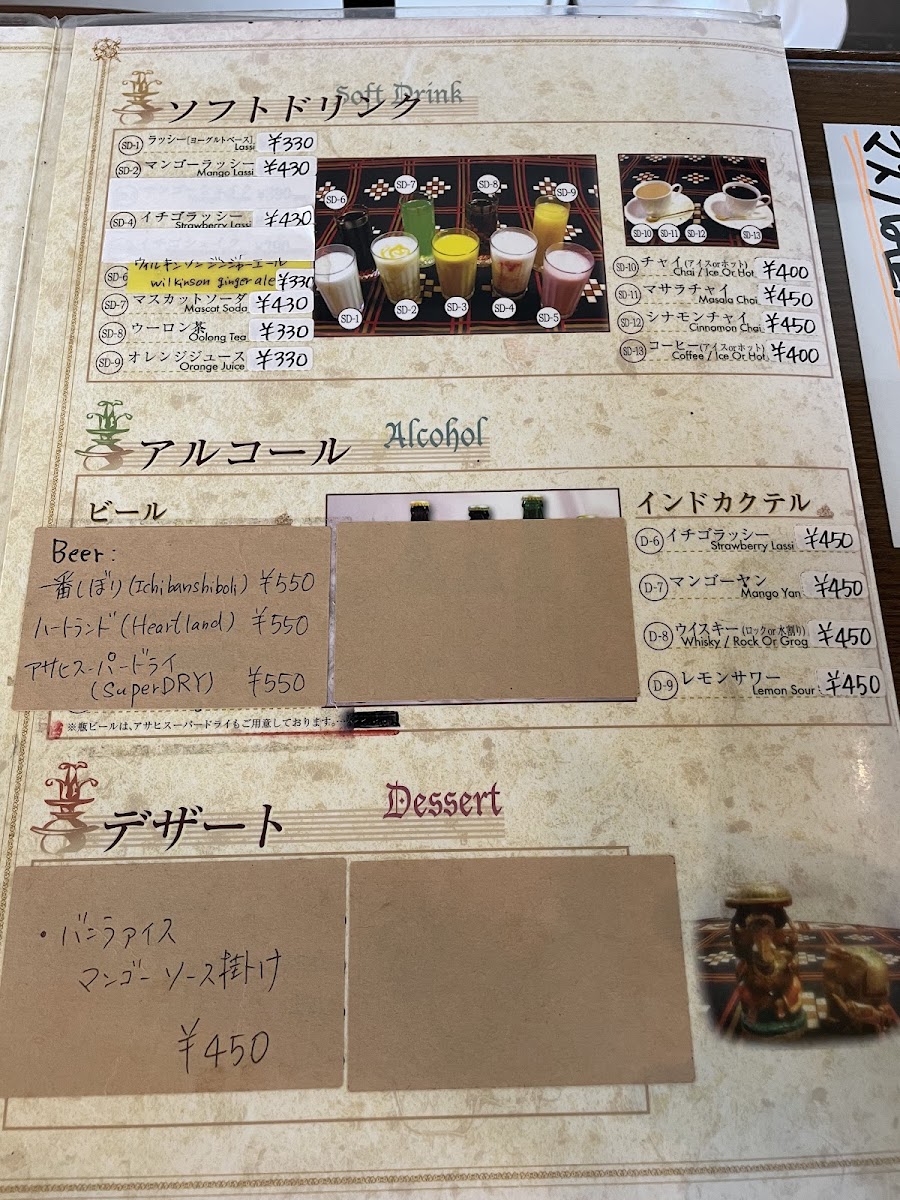 ソフトドリンク
Soft Drink
SD-1 ラッシー[ヨーグルトベース] ¥330
Lassi
SD-2 マンゴーラッシー ¥430
Mango Lassi
SD-4 イチゴラッシー ¥430
Strawberry Lassi
ウィルキンソンジンジャーエール
SD-6 wilkinson ginger ale ¥330
SD-7 マスカットソーダ ¥430
Mascat Soda
SD-8 ウーロン茶 ¥330
Oolong Tea
SD-9 オレンジジュース ¥330
Orange Juice
SD-6
SD-7
SD-8
SD-9
SD-1
SD-2
SD-3
SD-4
SD-5
SD-10
SD-11
SD-12
SD-13
SD-10 チャイ(アイスorホット) ¥400
Chai / Ice Or Hot
SD-11 マサラチャイ ¥450
Masala Chai
SD-12 シナモンチャイ ¥450
Cinnamon Chai
SD-13 コーヒー(アイスorホット) ¥400
Coffee / Ice Or Hot
アルコール
Alcohol
ビール
Beer:
一番しぼり(Ichibanshiboli) ¥550
ハートランド(Heartland) ¥550
アサヒスーパードライ
(SuperDRY) ¥550
※瓶ビールは、アサヒスーパードライもご用意しております。
インドカクテル
D-6 イチゴラッシー ¥450
Strawberry Lassi
D-7 マンゴーヤン ¥450
Mango Yan
D-8 ウイスキー(ロックor水割り) ¥450
Whisky / Rock Or Grog
D-9 レモンサワー ¥450
Lemon Sour
デザート
Dessert
・バニラアイス
マンゴーソース掛け
¥450